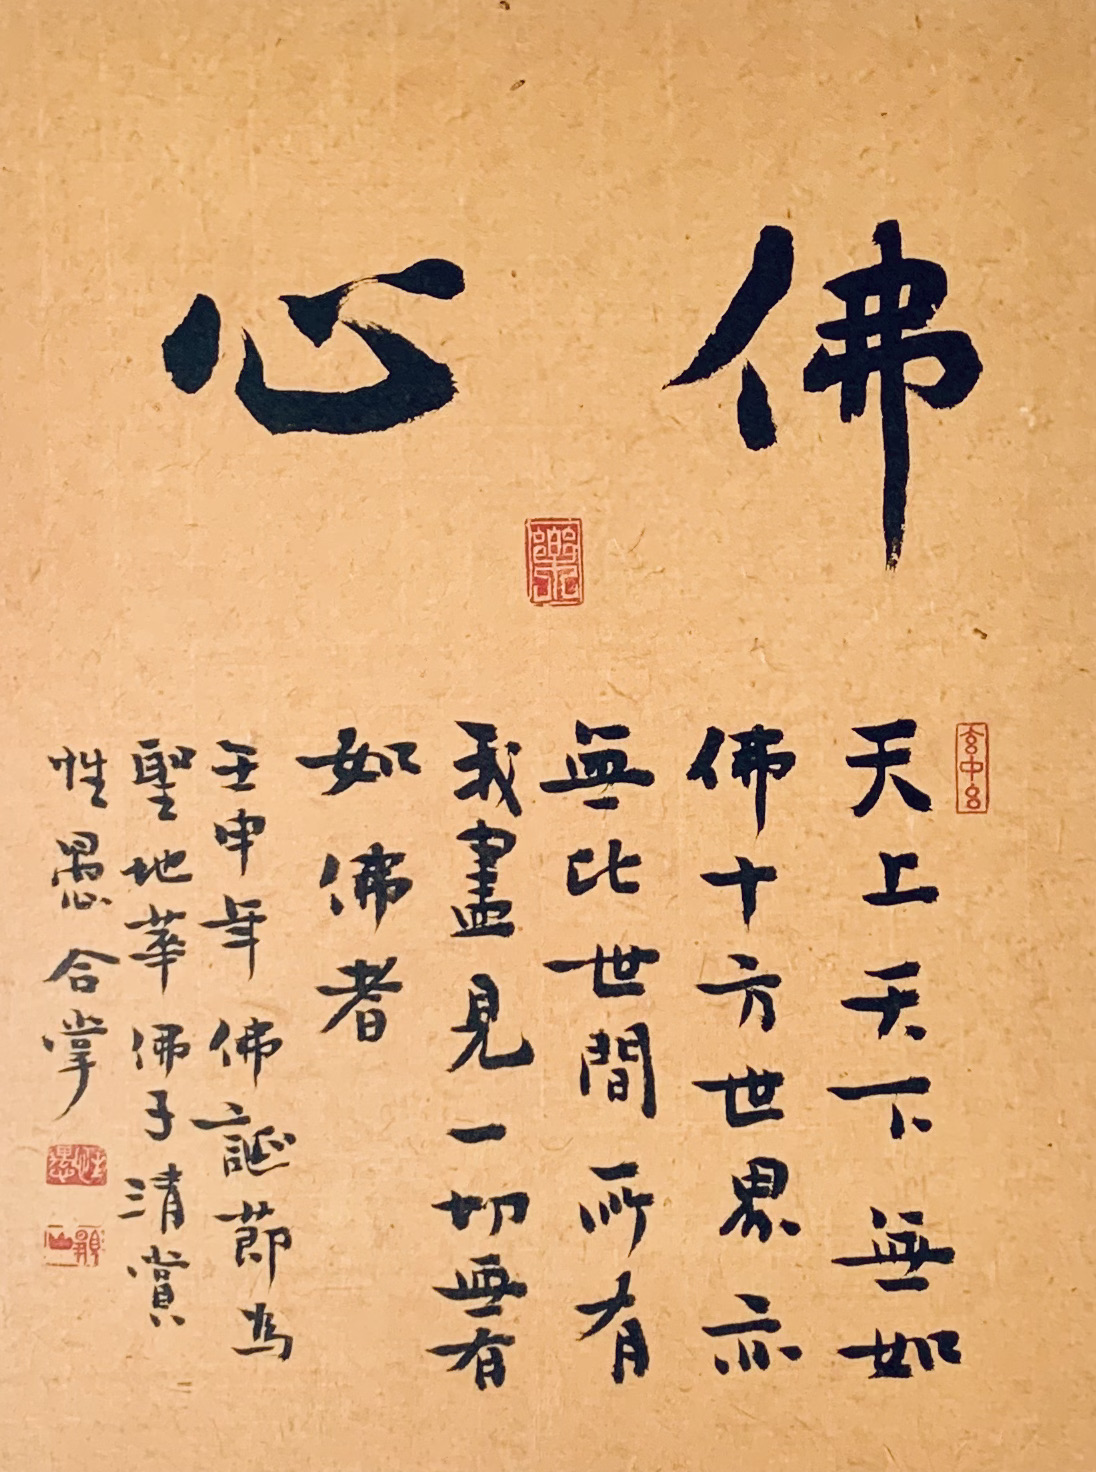 佛心
玄中玄
天上天下無如
佛十方世界亦
無比世間所有
我盡見一切無有
如佛者
壬申年佛誕節為
聖地華佛子清賞
性愚合掌
性愚